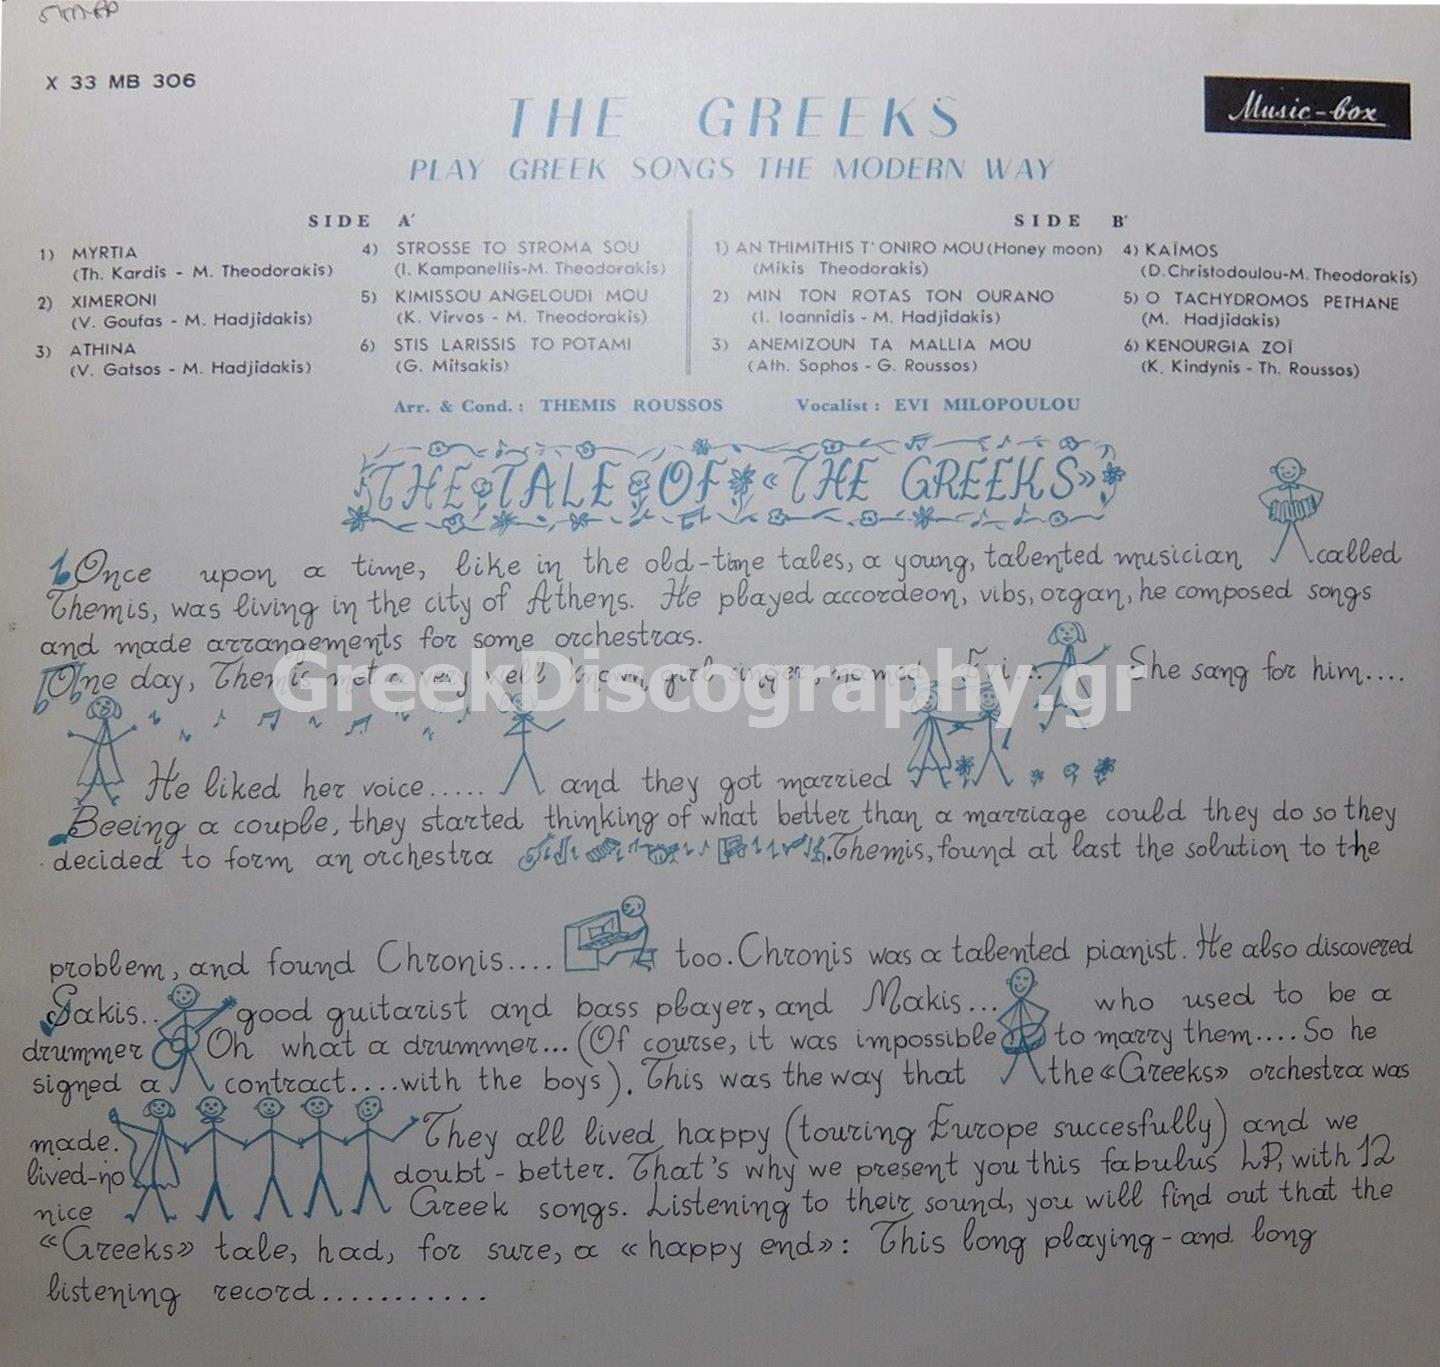 X 33 MB 306
Music-box
THE GREEKS
PLAY GREEK SONGS THE MODERN WAY
SIDE A'
1) MYRTIA
(Th. Kardis - M. Theodorakis)
2) XIMERONI
(V. Goufas - M. Hadjidakis)
3) ATHINA
(V. Gatsos - M. Hadjidakis)
4) STROSSE TO STROMA SOU
(I. Kampanellis-M. Theodorakis)
5) KIMISSOU ANGELOUDI MOU
(K. Virvos - M. Theodorakis)
6) STIS LARISSIS TO POTAMI
(G. Mitsakis)
SIDE B'
1) AN THIMITHIS T' ONIRO MOU (Honey moon)
(Mikis Theodorakis)
2) MIN TON ROTAS TON OURANO
(I. Ioannidis - M. Hadjidakis)
3) ANEMIZOUN TA MALLIA MOU
(Ath. Sophos - G. Roussos)
4) KAÏMOS
(D. Christodoulou-M. Theodorakis)
5) O TACHYDROMOS PETHANE
(M. Hadjidakis)
6) KENOURGIA ZOÏ
(K. Kindynis - Th. Roussos)
Arr. & Cond. : THEMIS ROUSSOS Vocalist : EVI MILOPOULOU
THE TALE OF «THE GREEKS»
Once upon a time, like in the old-time tales, a young, talented musician called
Themis, was living in the city of Athens. He played accordeon, vibs, organ, he composed songs
and made arrangements for some orchestras.
One day, Themis met a very well known girl singer, named Evi... She sang for him....
GreekDiscography.gr
He liked her voice..... and they got married
Beeing a couple, they started thinking of what better than a marriage could they do so they
decided to form an orchestra Themis, found at last the solution to the
problem, and found Chronis.... too. Chronis was a talented pianist. He also discovered
Sakis.. good guitarist and bass player, and Makis... who used to be a
drummer Oh what a drummer... (Of course, it was impossible to marry them.... So he
signed a contract....with the boys). This was the way that the «Greeks» orchestra was
made. They all lived happy (touring Europe succesfully) and we
lived-no doubt - better. That's why we present you this fabulus LP, with 12
nice Greek songs. Listening to their sound, you will find out that the
«Greeks» tale, had, for sure, a «happy end»: This long playing - and long
listening record...........